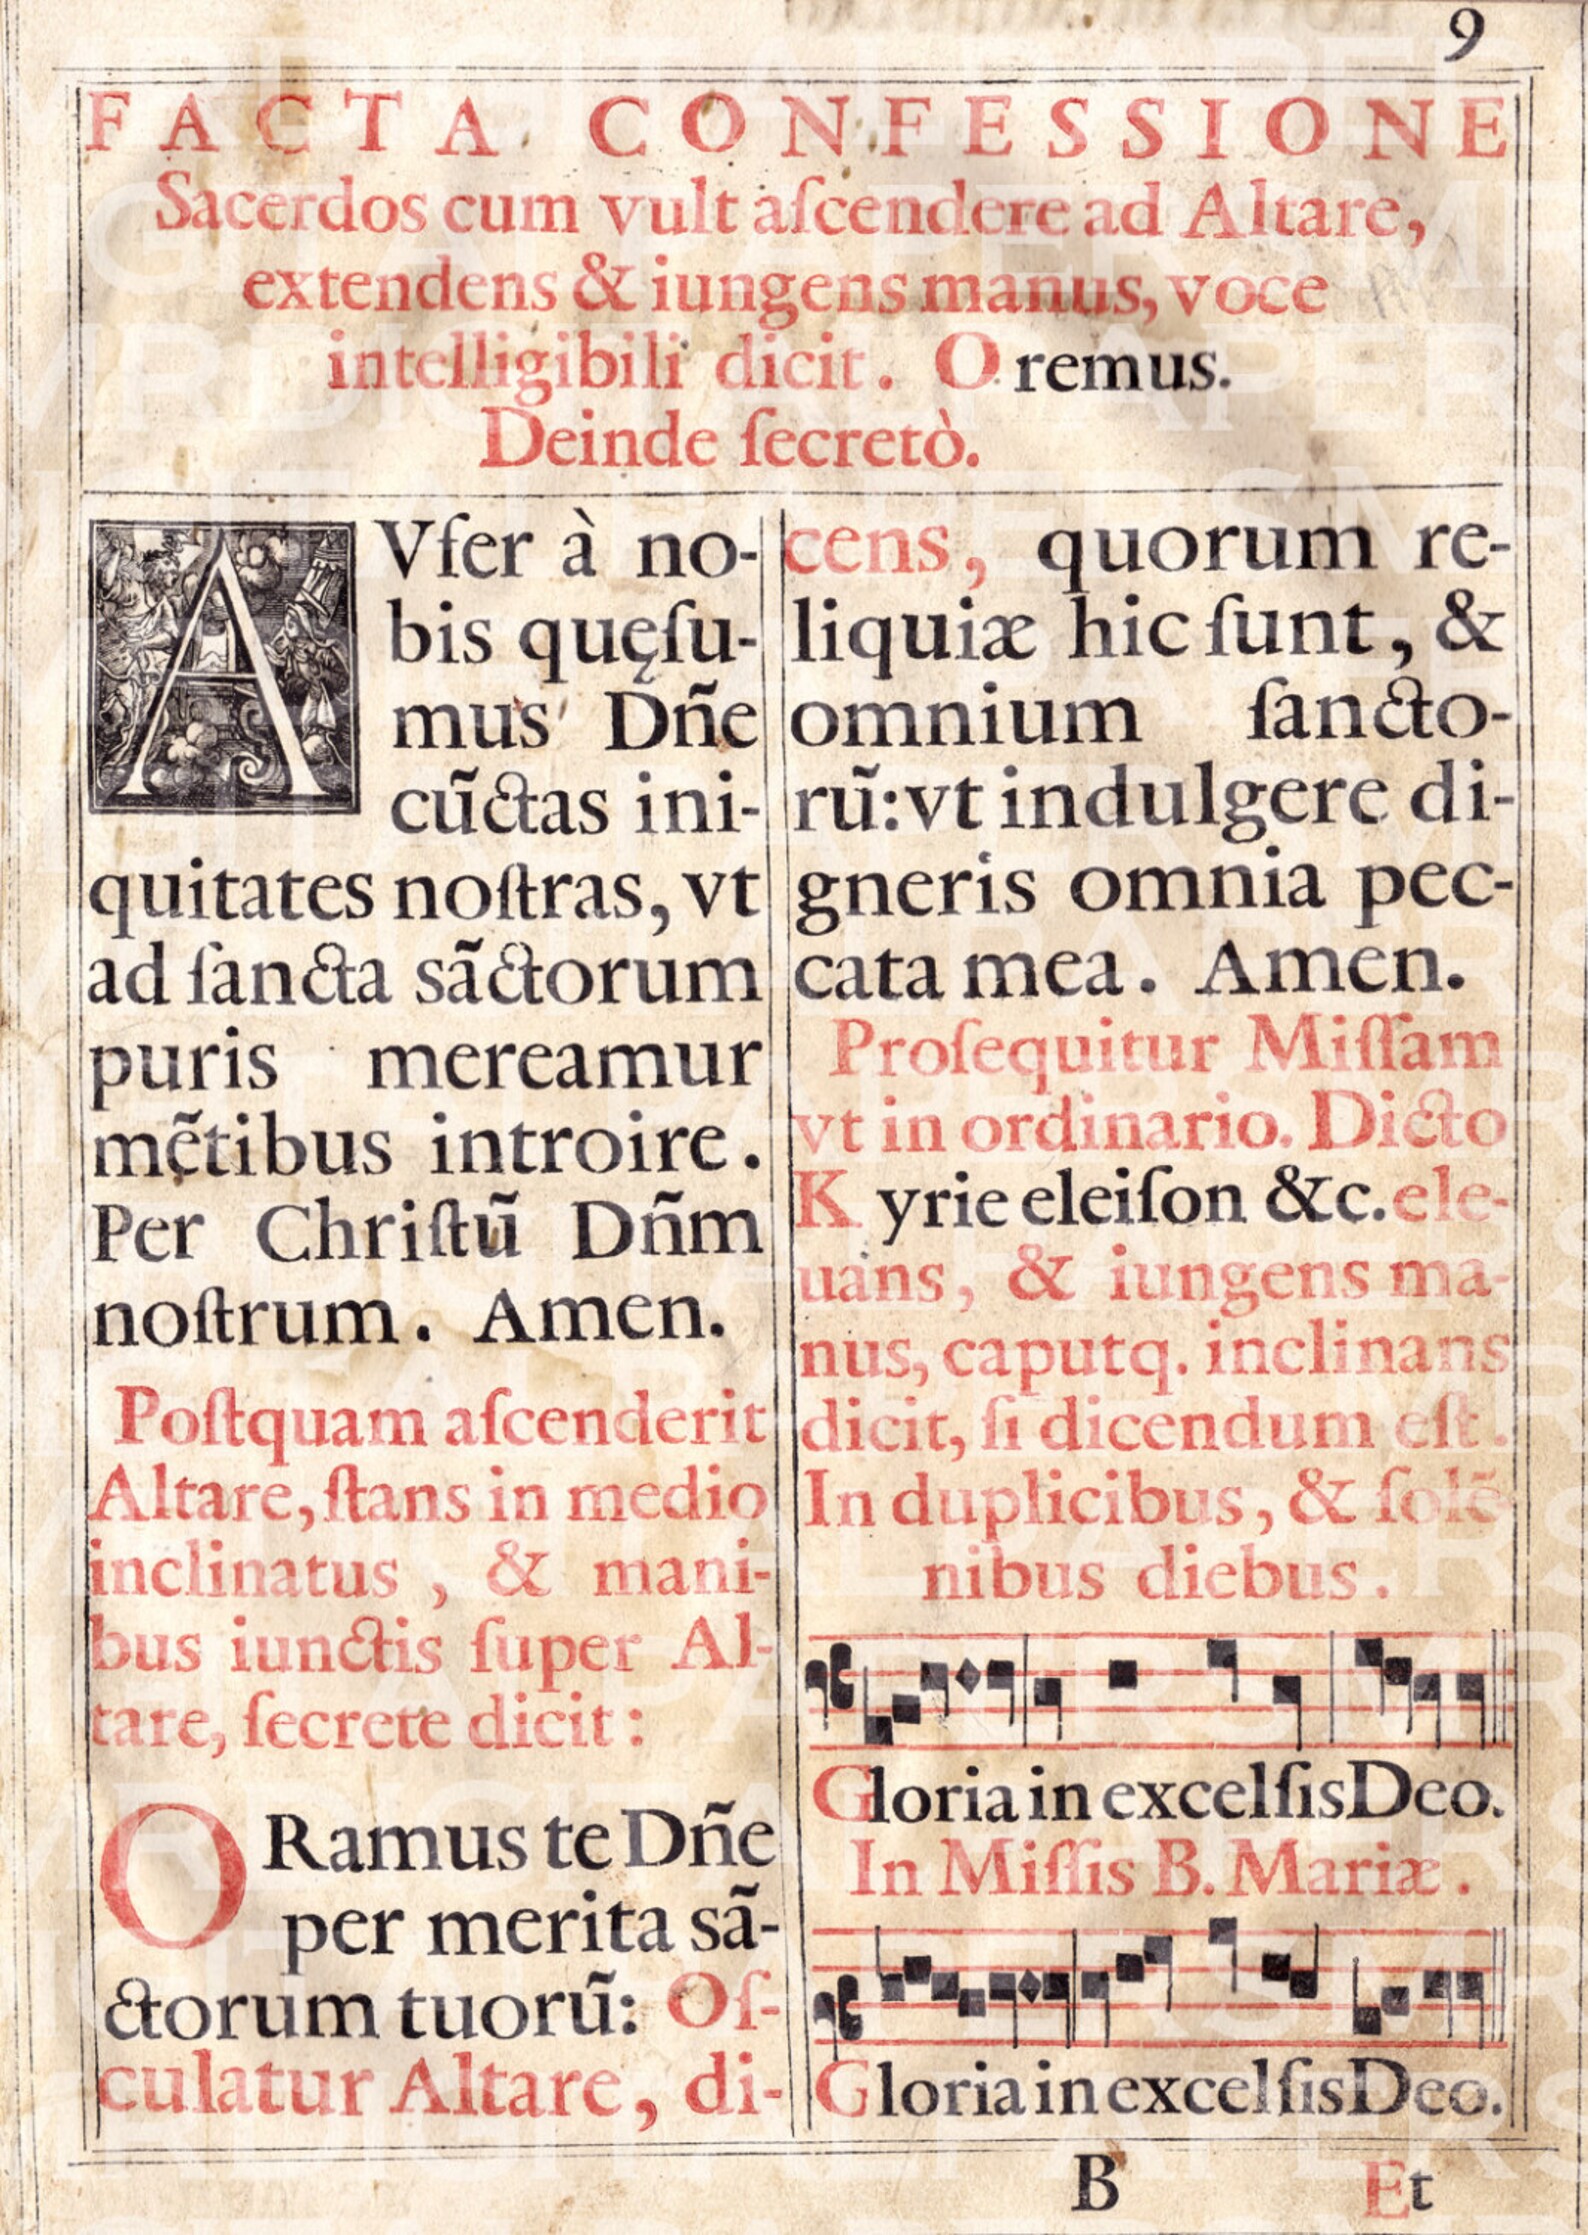 9
FACTA CONFESSIONE
Sacerdos cum vult aſcendere ad Altare,
extendens & iungens manus, voce
intelligibili dicit. Oremus.
Deinde ſecretò.
AVfer à no-
bis quęſu-
mus Dñe
cũctas ini-
quitates noſtras, vt
ad ſancta sãctorum
puris mereamur
mẽtibus introire.
Per Chriſtũ Dñm
noſtrum. Amen.
Poſtquam aſcenderit
Altare, ſtans in medio
inclinatus, & mani-
bus iunctis ſuper Al-
tare, ſecrete dicit:
ORamus te Dñe
per merita sã-
ctorum tuorũ: Oſ-
culatur Altare, di-
cens, quorum re-
liquiæ hic ſunt, &
omnium ſancto-
rũ: vt indulgere di-
gneris omnia pec-
cata mea. Amen.
Proſequitur Miſſam
vt in ordinario. Dicto
Kyrie eleiſon &c. ele-
uans, & iungens ma-
nus, caputq. inclinans
dicit, ſi dicendum eſt.
In duplicibus, & ſolẽ
nibus diebus.
Gloria in excelſis Deo.
In Miſſis B. Mariæ.
Gloria in excelſis Deo.
B Et